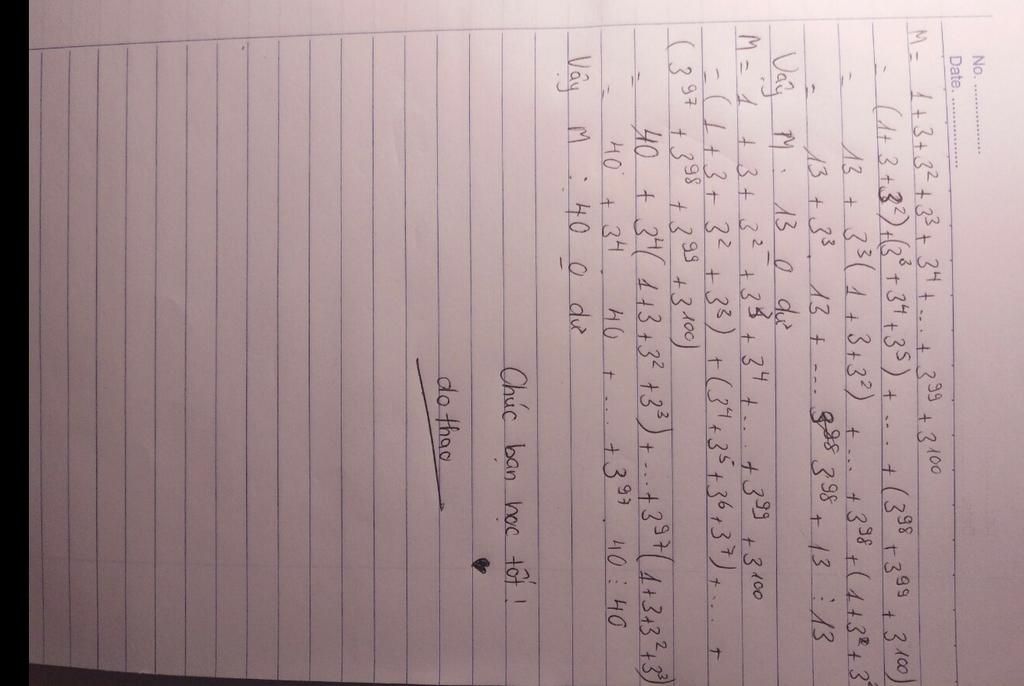 No. ................
Date. ................
M = 1 + 3 + 3² + 3³ + 3⁴ + ... + 3⁹⁹ + 3¹⁰⁰
= (1 + 3 + 3²) + (3³ + 3⁴ + 3⁵) + .... + (3⁹⁸ + 3⁹⁹ + 3¹⁰⁰)
= 13 + 3³ (1 + 3 + 3²) + ... + 3⁹⁸ + (1 + 3² + 3²
= 13 + 3³. 13 + ... 3⁹⁸ + 13 ⋮ 13
Vậy M : 13 0 dư
M = 1 + 3 + 3² + 3³ + 3⁴ + ... + 3⁹⁹ + 3¹⁰⁰
= (1 + 3 + 3² + 3³) + (3⁴ + 3⁵ + 3⁶ + 3⁷) + ... +
(3⁹⁷ + 3⁹⁸ + 3⁹⁹ + 3¹⁰⁰)
= 40 + 3⁴ (1 + 3 + 3² + 3³) + ... + 3⁹⁷ (1 + 3 + 3² + 3³)
= 40 + 3⁴. 40 + ... + 3⁹⁷. 40 ⋮ 40
Vậy M : 40 0 dư
Chúc bạn học tốt!
do thao